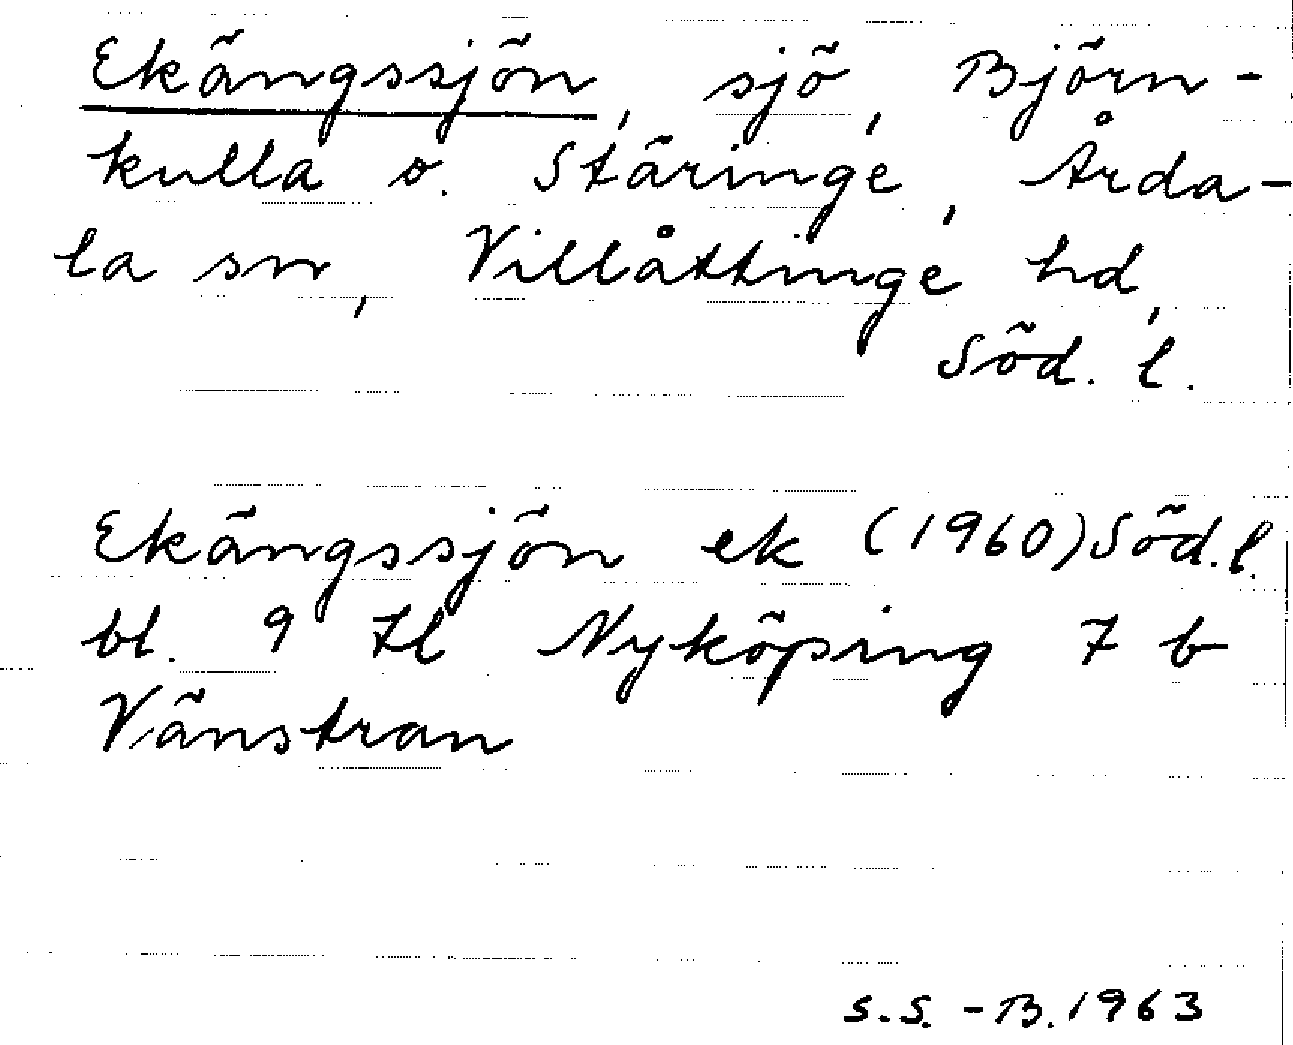 Ekängssjön, sjö, Björn-
kulla o. Stäringe, Årda-
la sn, Villåttinge hd,
Söd. l.
Ekängssjön ek (1960) Söd. l.
bl. 9 tl Nyköping 7 b
Vänstran
S.S. - B. 1963